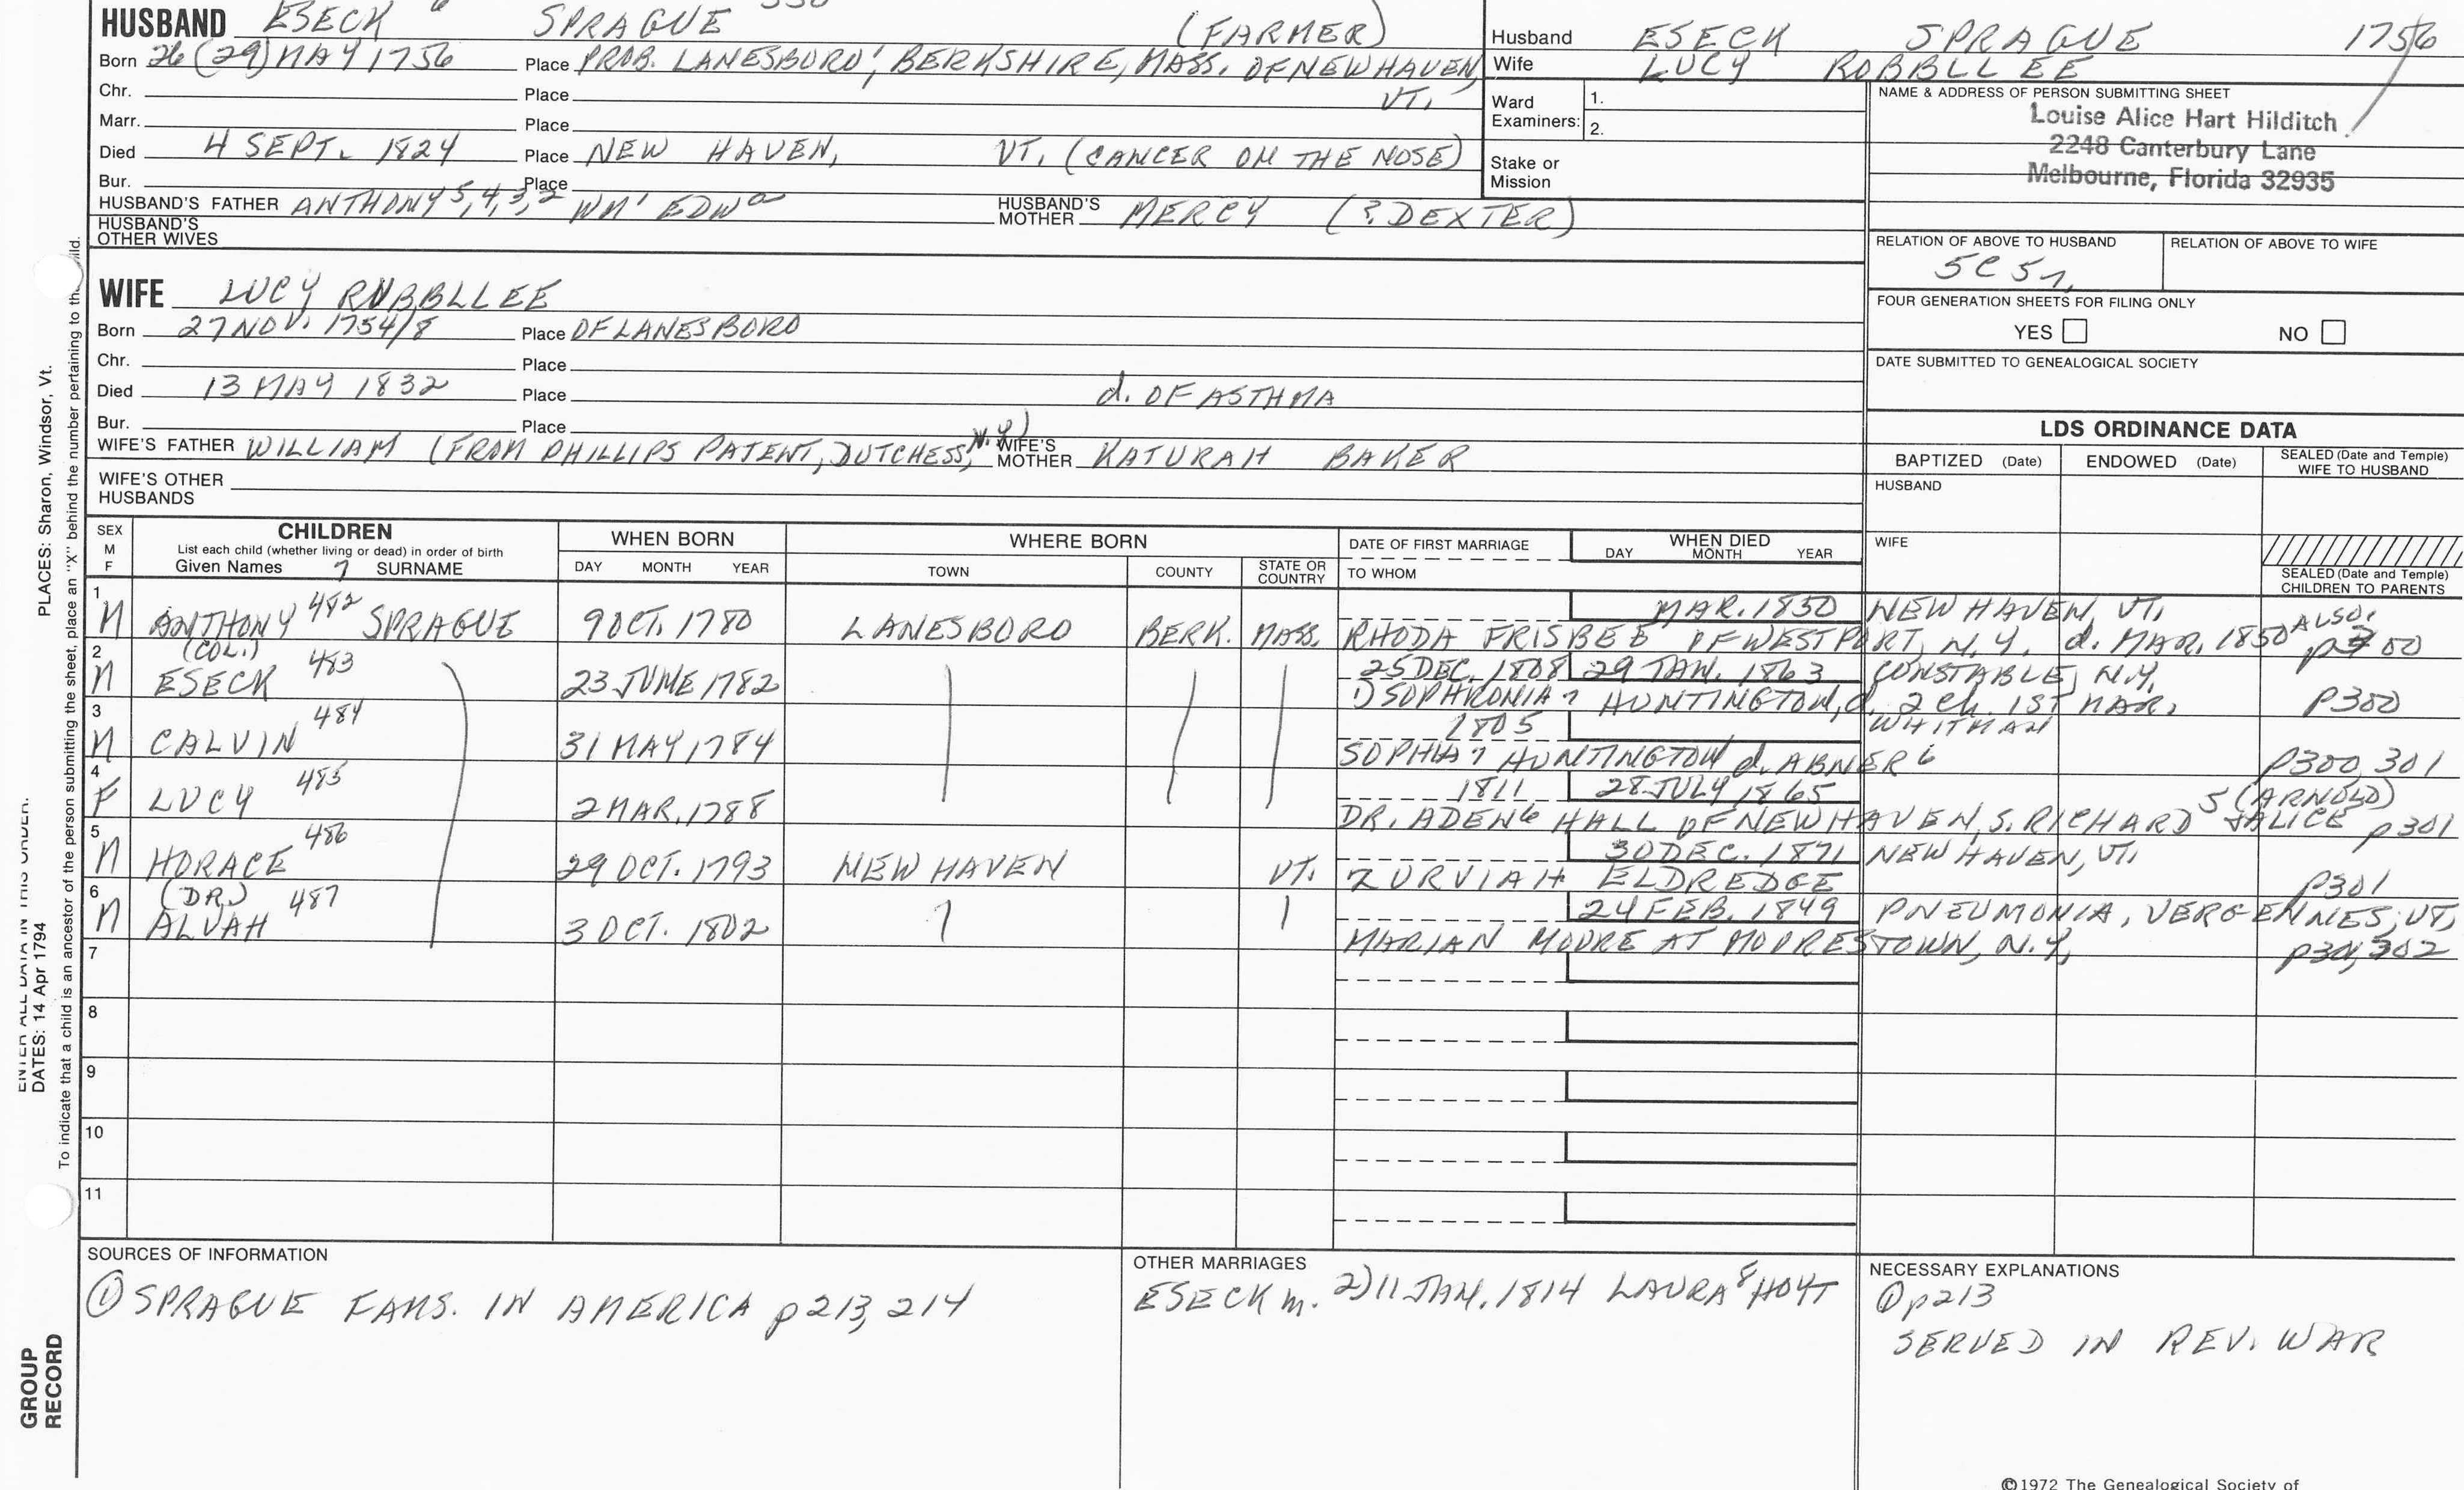 HUSBAND ESECK 6 SPRAGUE (FARMER)
Born 26 (29) MAY 1756 Place PROB. LANESBORO, BERKSHIRE, MASS. OF NEW HAVEN, VT.
Chr. Place
Marr. Place
Died 4 SEPT. 1824 Place NEW HAVEN, VT. (CANCER ON THE NOSE)
Bur. Place
HUSBAND'S FATHER ANTHONY 5,4,3,2 WM' EDWa HUSBAND'S MOTHER MERCY (?DEXTER)
HUSBAND'S OTHER WIVES
WIFE LUCY RUBBLLEE
Born 27 NOV. 1754/8 Place OF LANESBORO
Chr. Place
Died 13 MAY 1832 Place d. OF ASTHMA
Bur. Place
WIFE'S FATHER WILLIAM (FROM PHILLIPS PATENT, DUTCHESS, N.Y.) WIFE'S MOTHER KATURAH BAKER
WIFE'S OTHER HUSBANDS
Husband ESECK SPRAGUE 1756
Wife LUCY ROBBLLEE
Ward Examiners: 1.
2.
Stake or Mission
NAME & ADDRESS OF PERSON SUBMITTING SHEET
Louise Alice Hart Hilditch
2248 Canterbury Lane
Melbourne, Florida 32935
RELATION OF ABOVE TO HUSBAND RELATION OF ABOVE TO WIFE
5C5
FOUR GENERATION SHEETS FOR FILING ONLY
YES NO
DATE SUBMITTED TO GENEALOGICAL SOCIETY
LDS ORDINANCE DATA
BAPTIZED (Date) ENDOWED (Date) SEALED (Date and Temple) WIFE TO HUSBAND
HUSBAND
WIFE
SEALED (Date and Temple) CHILDREN TO PARENTS
SEX M F
CHILDREN
List each child (whether living or dead) in order of birth
Given Names 7 SURNAME
WHEN BORN
DAY MONTH YEAR
WHERE BORN
TOWN COUNTY STATE OR COUNTRY
DATE OF FIRST MARRIAGE
TO WHOM
WHEN DIED
DAY MONTH YEAR
1 M ANTHONY 482 SPRAGUE 9 OCT. 1780 LANESBORO BERK. MASS. MAR. 1850 NEW HAVEN, VT.
(COL.) RHODA FRISBEE OF WESTPORT, N.Y. d. MAR. 1850 ALSO, p300
2 M ESECK 483 23 JUNE 1782 25 DEC. 1808 29 JAN. 1863 CONSTABLE, N.Y.
1) SOPHRONIA 7 HUNTINGTON, d. 2 Ch. 1ST MAR. P300
3 M CALVIN 484 31 MAY 1784 1805 WHITMAN
SOPHIA 7 HUNTINGTON d. ABNER 6 P300, 301
4 F LUCY 485 2 MAR. 1788 1811 28 JULY 1865
DR. ADEN 6 HALL OF NEW HAVEN, S. RICHARD 5 & ALICE (ARNOLD) p301
5 M HORACE 486 29 OCT. 1793 NEW HAVEN VT. 30 DEC. 1871 NEW HAVEN, VT.
(DR.) ZURVIAH ELDREDGE p301
6 M ALVAH 487 3 OCT. 1802 24 FEB. 1849 PNEUMONIA, VERGENNES, VT.
MARIAN MOORE AT MOORESTOWN, N.Y. p301, 302
7
8
9
10
11
SOURCES OF INFORMATION
① SPRAGUE FAMS. IN AMERICA p213, 214
OTHER MARRIAGES
ESECK m. 2) 11 JAN. 1814 LAURA 8 HOYT
NECESSARY EXPLANATIONS
① p213
SERVED IN REV. WAR
©1972 The Genealogical Society of
PLACES: Sharon, Windsor, Vt.
ENTER ALL DATA IN THIS ORDER:
DATES: 14 Apr 1794
To indicate that a child is an ancestor of the person submitting the sheet, place an "X" behind the number pertaining to th ild.
GROUP RECORD